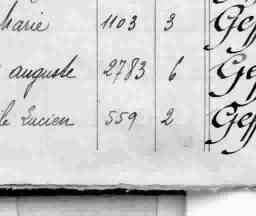 Marie 1103 3 Geff
auguste 2783 6 Geff
Lucien 559 2 Geff